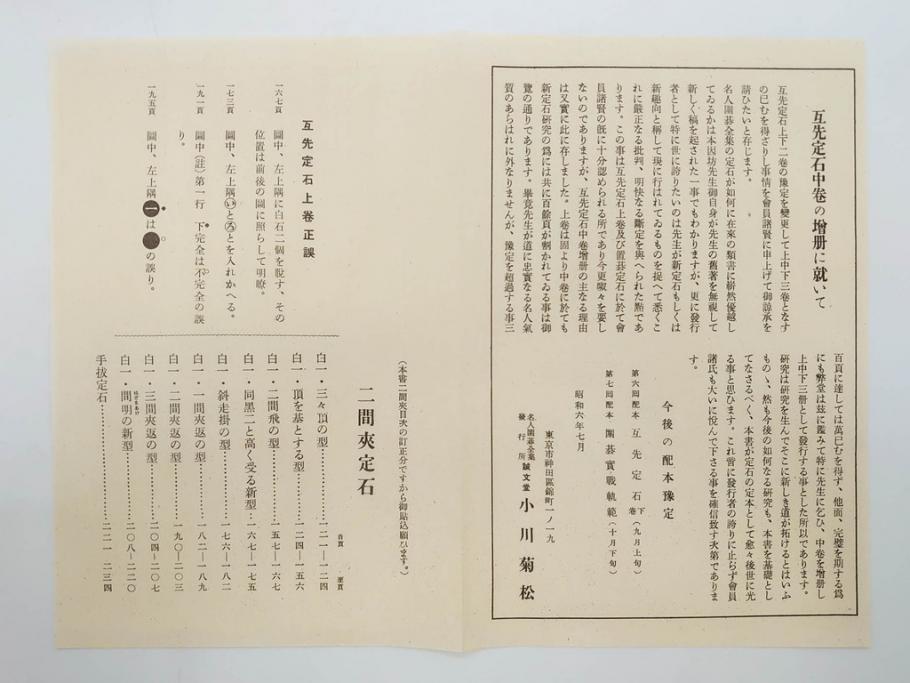 互先定石中卷の增册に就いて
互先定石上下二卷の豫定を變更して上中下三卷となす
の已むを得ざりし事情を會員諸賢に申上げて御諒承を
請ひたいと存じます。
名人圍碁全集の定石が如何に在來の類書に嶄然優越し
てゐるかは本因坊先生御自身が先生の舊著を無視して
新しく稿を起された一事でもわかりますが、更に發行
者として特に世に誇りたいのは先生が新定石もしくは
新趣向と稱して現に行はれてゐるものを捉へて悉くこ
れに嚴正なる批判、明快なる斷定を與へられた點であ
ります。この事は互先定石上卷及び置碁定石に於て會
員諸賢の既に十分認められる所であり今更呶々を要し
ないのでありますが、互先定石中卷增册の主なる理由
は又實に此に存しました。上卷は固より中卷に於ても
新定石研究の爲には共に百餘頁が割かれてゐる事は御
覽の通りであります。畢竟先生が道に忠實なる名人氣
質のあらはれに外なりませんが、豫定を超過する事三
百頁に達しては萬已むを得ず、他面、完璧を期する爲
にも弊堂は玆に鑑みて特に先生に乞ひ、中卷を增册し
上中下三册として發行する事とした所以であります。
研究は研究を生んでそこに新しき道が拓けるとはいふ
ものゝ、然も今後の如何なる研究も、本書を基礎とし
てなさるべく、本書が定石の定本として愈々後世に光
る事と思ひます。これ啻に發行者の誇りに止らず會員
諸氏も大いに悅んで下さる事を確信致す次第でありま
す。
今後の配本豫定
第六囘配本 互先定石下卷(九月上旬)
第七囘配本 圍碁實戰軌範(十月下旬)
昭和六年七月
東京市神田區錦町一ノ一九
名人圍碁全集發行所 誠文堂 小川菊松
互先定石上卷正誤
一六七頁 圖中、左上隅に白石二個を脫す、その
位置は前後の圖に照らして明瞭。
一七三頁 圖中、左上隅いとろとを入れかへる。
一九一頁 圖中(註)第一行 下完全は不完全の誤
り。
一九五頁 圖中、左上隅一は の誤り。
(本書二間夾目次の訂正分ですから御貼込願ひます。)
二間夾定石
自頁 至頁
白一・三々頂の型 一二一—一二四
白一・頂を基とする型 一二四—一五六
白一・二間飛の型 一五七—一六七
白一・同黑二と高く受る新型 一六七—一七五
白一・斜走掛の型 一七六—一八二
白一・一間夾返の型 一八二—一八九
白一・二間夾返の型 一九〇—二〇三
白一・三間夾返の型 二〇四—二〇七
白一・間明の新型 二〇八—二二〇
手拔定石 二二一—二三四